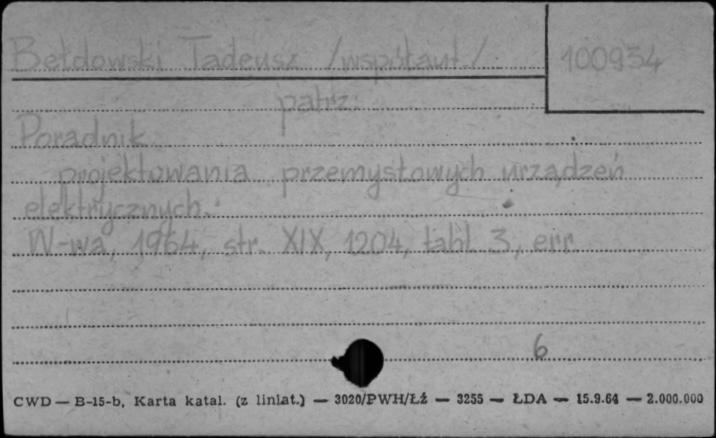 Bełdowski Tadeusz /współaut./ 100934
patrz:
Poradnik
projektowania przemysłowych urządzeń
elektrycznych.
W-wa, 1964, str. XIX, 1204, tabl. 3, err.
6
CWD — B-15-b, Karta katal. (z liniat.) — 3020/PWH/Łź — 3255 — ŁDA — 15.9.64 — 2.000.000